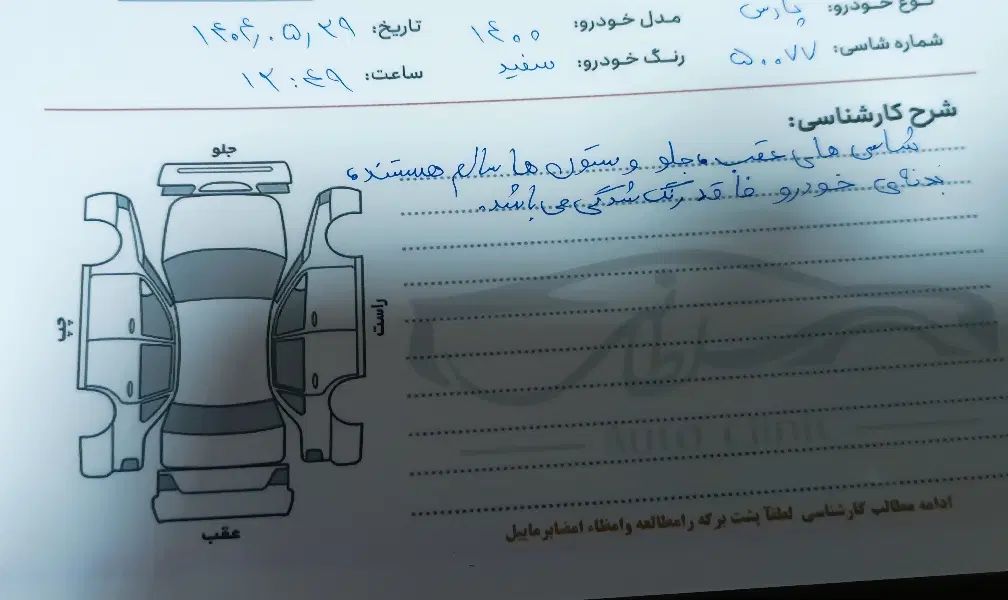 نوع خودرو: پارس
مدل خودرو: ۱۴۰۰
تاریخ: ۱۴۰۴,۰۵,۲۹
شماره شاسی: ۵۰۰۷۷
رنگ خودرو: سفید
ساعت: ۱۲:۴۹
شرح کارشناسی:
شاسی های عقب، جلو و ستون ها سالم هستند،
بدنه‌ی خودرو فاقد رنگ شدگی می باشد.
جلو
چپ
راست
عقب
AUTO CLINIC
ادامه مطالب کارشناسی لطفآ پشت برگه رامطالعه وامظاء امضابرماییل